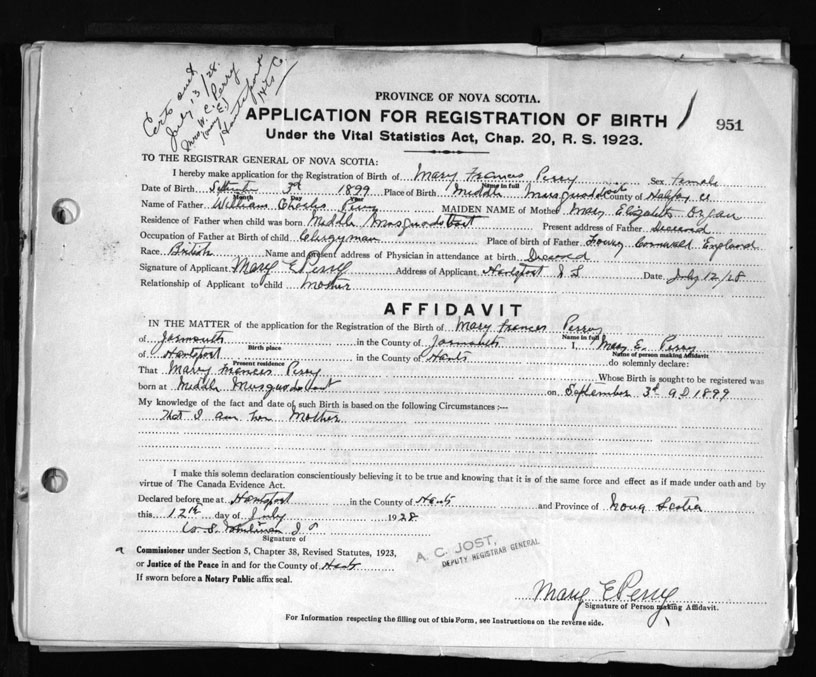 Certs sent
July 13/28.
Mrs W. C. Perry
(Mary E.)
Hantsport
Hts Co
PROVINCE OF NOVA SCOTIA.
APPLICATION FOR REGISTRATION OF BIRTH 951
Under the Vital Statistics Act, Chap. 20, R. S. 1923.
TO THE REGISTRAR GENERAL OF NOVA SCOTIA:
I hereby make application for the Registration of Birth of Mary Frances Perry Sex Female
Name in full
Date of Birth 3rd 1899 Place of Birth Middle Musquodoboit County of Halifax
Month Day Year
Name of Father William Charles Perry MAIDEN NAME of Mother Mary Elizabeth Organ
Residence of Father when child was born Middle Musquodoboit Present address of Father Deceased
Occupation of Father at Birth of child Clergyman Place of birth of Father Cornwall England
Race British Name and present address of Physician in attendance at birth Deceased
Signature of Applicant Mary E Perry Address of Applicant Hantsport N S Date July 12/28
Relationship of Applicant to child Mother
AFFIDAVIT
IN THE MATTER of the application for the Registration of the Birth of Mary Frances Perry
Name in full
of Yarmouth in the County of Yarmouth I, Mary E. Perry
Birth place Name of person making Affidavit
of Hantsport in the County of Hants do solemnly declare:
Present residence
That Mary Frances Perry Whose Birth is sought to be registered was
born at Middle Musquodoboit on September 3rd A D 1899
My knowledge of the fact and date of such Birth is based on the following Circumstances :—
That I am her Mother
I make this solemn declaration conscientiously believing it to be true and knowing that it is of the same force and effect as if made under oath and by
virtue of The Canada Evidence Act.
Declared before me at Hantsport in the County of Hants and Province of Nova Scotia
this 12th day of July 1928
Signature of
a Commissioner under Section 5, Chapter 38, Revised Statutes, 1923,
or Justice of the Peace in and for the County of Hants
If sworn before a Notary Public affix seal.
A. C. JOST,
DEPUTY REGISTRAR GENERAL
Mary E Perry
Signature of Person making Affidavit.
For Information respecting the filling out of this Form, see Instructions on the reverse side.